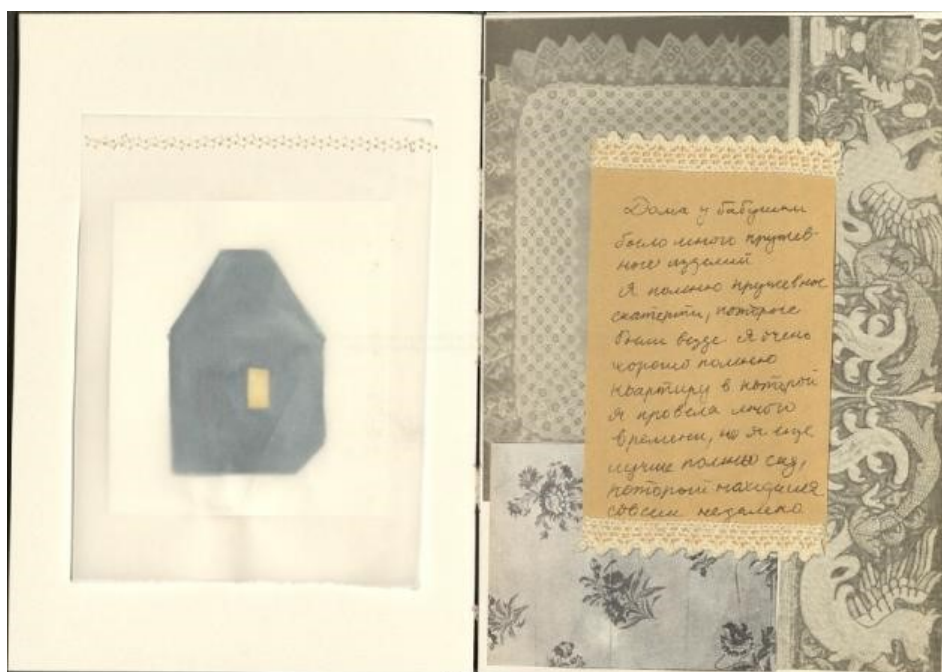 Дома у бабушки
было много кружев-
ных изделий
Я помню кружевные
скатерти, которые
были везде Я очень
хорошо помню
квартиру в которой
я провела много
времени, но я еще
лучше помню сад,
который находился
совсем недалеко